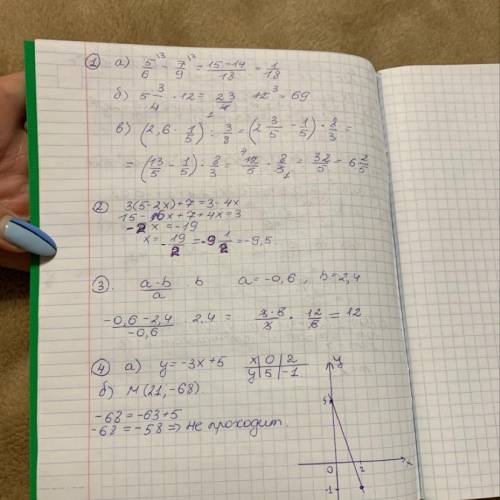 ① а) 5/6 - 7/9 = (15-14)/18 = 1/18
б) 5 3/4 · 12 = 23/4 · 12³ = 69
в) (2,6 · 1/5) : 3/8 = (2 3/5 - 1/5) · 8/3 =
= (13/5 - 1/5) · 8/3 = 12/5 · 8/3 = 32/5 = 6 2/5
② 3(5-2x)+7=3-4x
15-10x+7+4x=3
-2x=-19
x=-19/2=-9 1/2=-9,5
③. (a-b)/a b a=-0,6, b=2,4
(-0,6-2,4)/-0,6 · 2,4 = · 12/6 = 12
④ а) y=-3x+5 x|0|2
y|5|-1
б) M(21,-68)
-68=-63+5
-68=-58=>не проходит.
y
5
0 2 x
-1